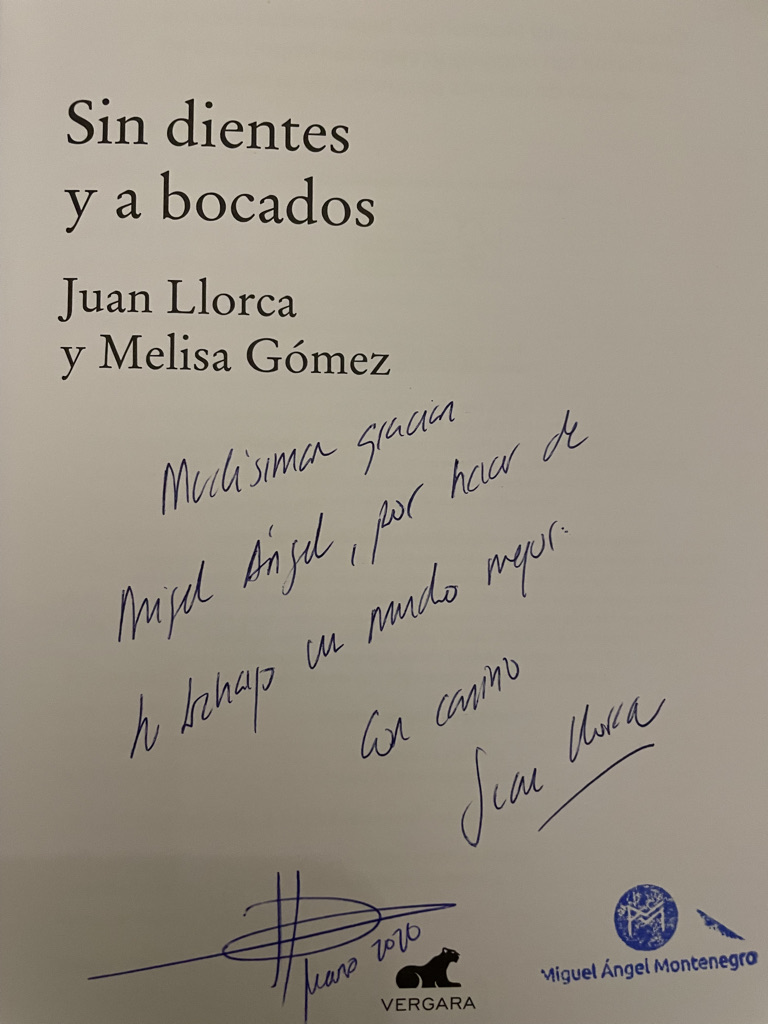 Sin dientes
y a bocados
Juan Llorca
y Melisa Gómez
Muchísimas gracias
Miguel Ángel, por hacer de
tu trabajo un mundo mejor.
Con cariño
Juan Llorca
2020
VERGARA
Miguel Ángel Montenegro